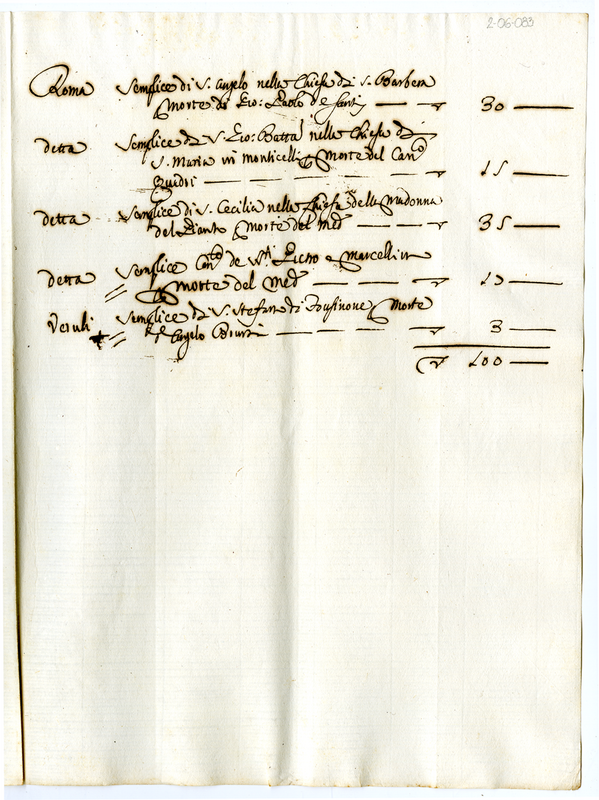 2-06-083
Roma Semplice di S. Angelo nella Chiesa di S. Barbera
Morte di Gio: Paolo de 30
detta Semplice di S. Gio: Batta nella Chiesa di
S. Maria in monticelli Morte del Can.º
Guidi 15
detta Semplice di S. Cecilia nella Chiesa della Madonna
del Pianto Morte del Med.º 35
detta Semplice de Pietro e Marcellin
morte del Med.º
Veruli Semplice di S. Stefano di Morte
Angelo 3
100